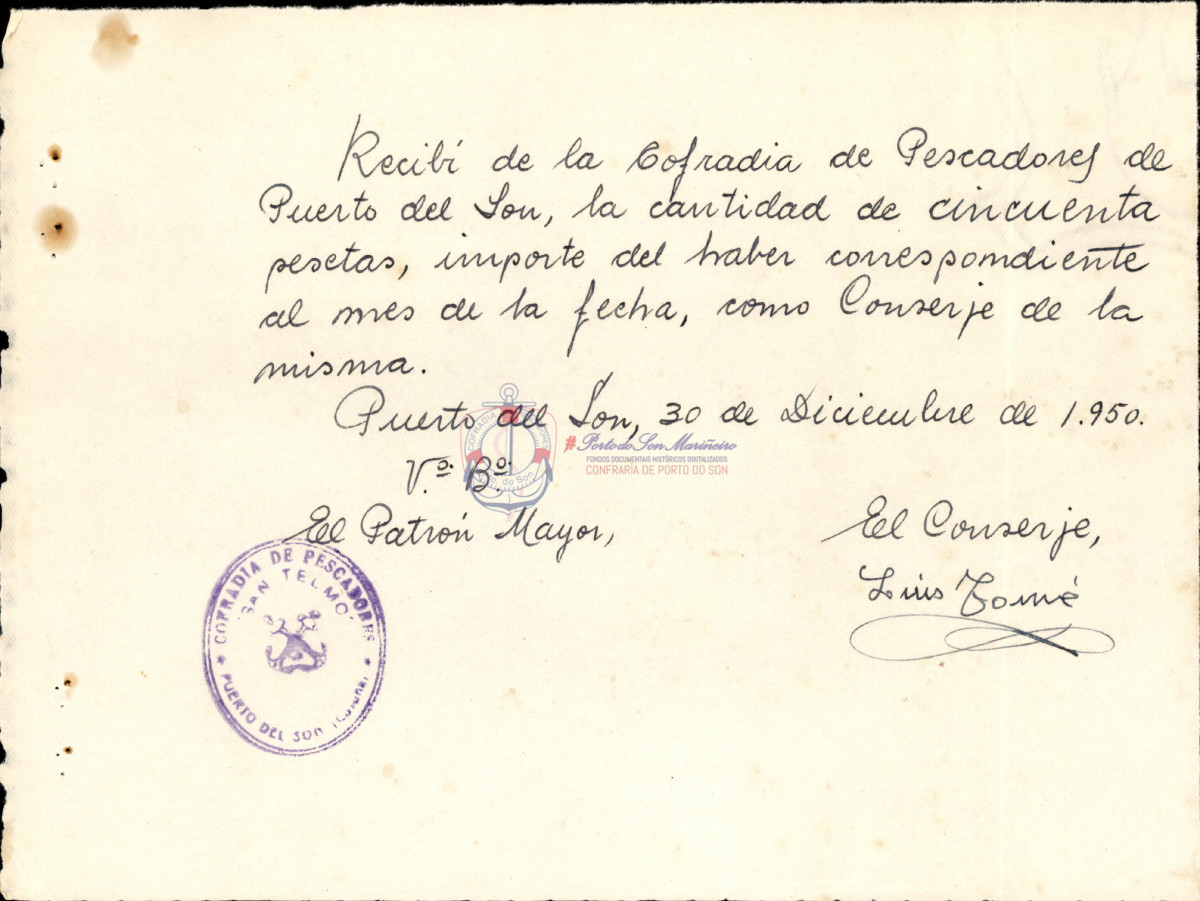 Recibí de la Cofradia de Pescadores de
Puerto del Son, la cantidad de cincuenta
pesetas, importe del haber correspondiente
al mes de la fecha, como Conserje de la
misma.
Puerto del Son, 30 de Diciembre de 1.950.
#Porto do Son Mariñeiro
FONDOS DOCUMENTAIS HISTÓRICOS DIXITALIZADOS
CONFRARÍA DE PORTO DO SON
COFRADIA
do Son
V.º B.º
El Patrón Mayor,
El Conserje,
Luis Tomé
COFRADIA DE PESCADORES
"SAN TELMO"
PUERTO DEL SON